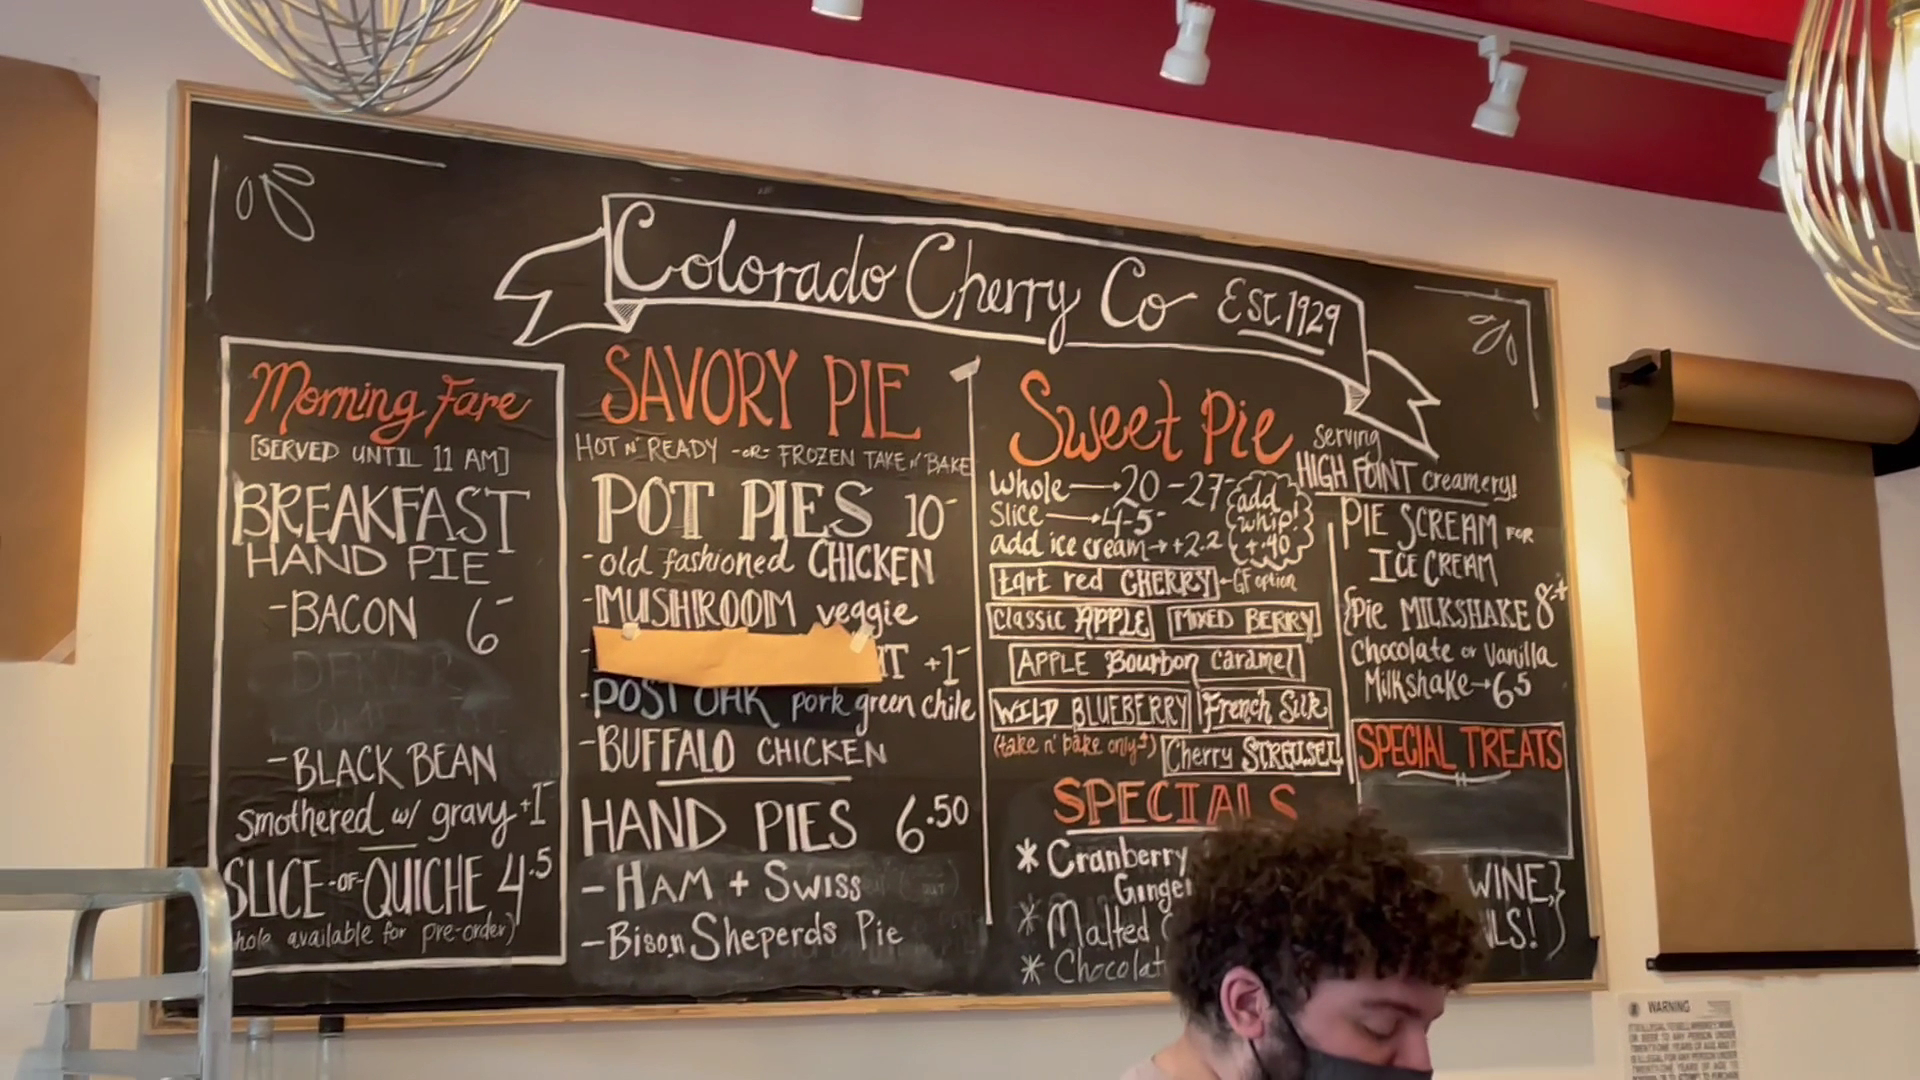 Colorado Cherry Co Est 1929
Morning Fare
[SERVED UNTIL 11 AM]
BREAKFAST
HAND PIE
-BACON 6-
-BLACK BEAN
smothered w/ gravy +1-
SLICE-OF-QUICHE 4.5
available for pre-order)
SAVORY PIE
HOT N' READY -OR- FROZEN TAKE n' BAKE
POT PIES 10-
-old fashioned CHICKEN
-MUSHROOM veggie
+1-
-POST OAK pork green chile
-BUFFALO CHICKEN
HAND PIES 6.50
-HAM + SWISS
-Bison Sheperds Pie
Sweet Pie
Whole→20-27-
Slice→4-5-
add ice cream→+2.2
add
whip!
+.40
tart red CHERRY -GF option
Classic APPLE MIXED BERRY
APPLE Bourbon Caramel
WILD BLUEBERRY French Silk
(take n' bake only↑) Cherry STREUSEL
SPECIALS
* Cranberry
Ginger
* Malted
* Chocolat
Serving
HIGH POINT creamery!
PIE SCREAM FOR
ICE CREAM
Pie MILKSHAKE 8-+
Chocolate or Vanilla
Milkshake→6.5
SPECIAL TREATS
WINE,}
WARNING